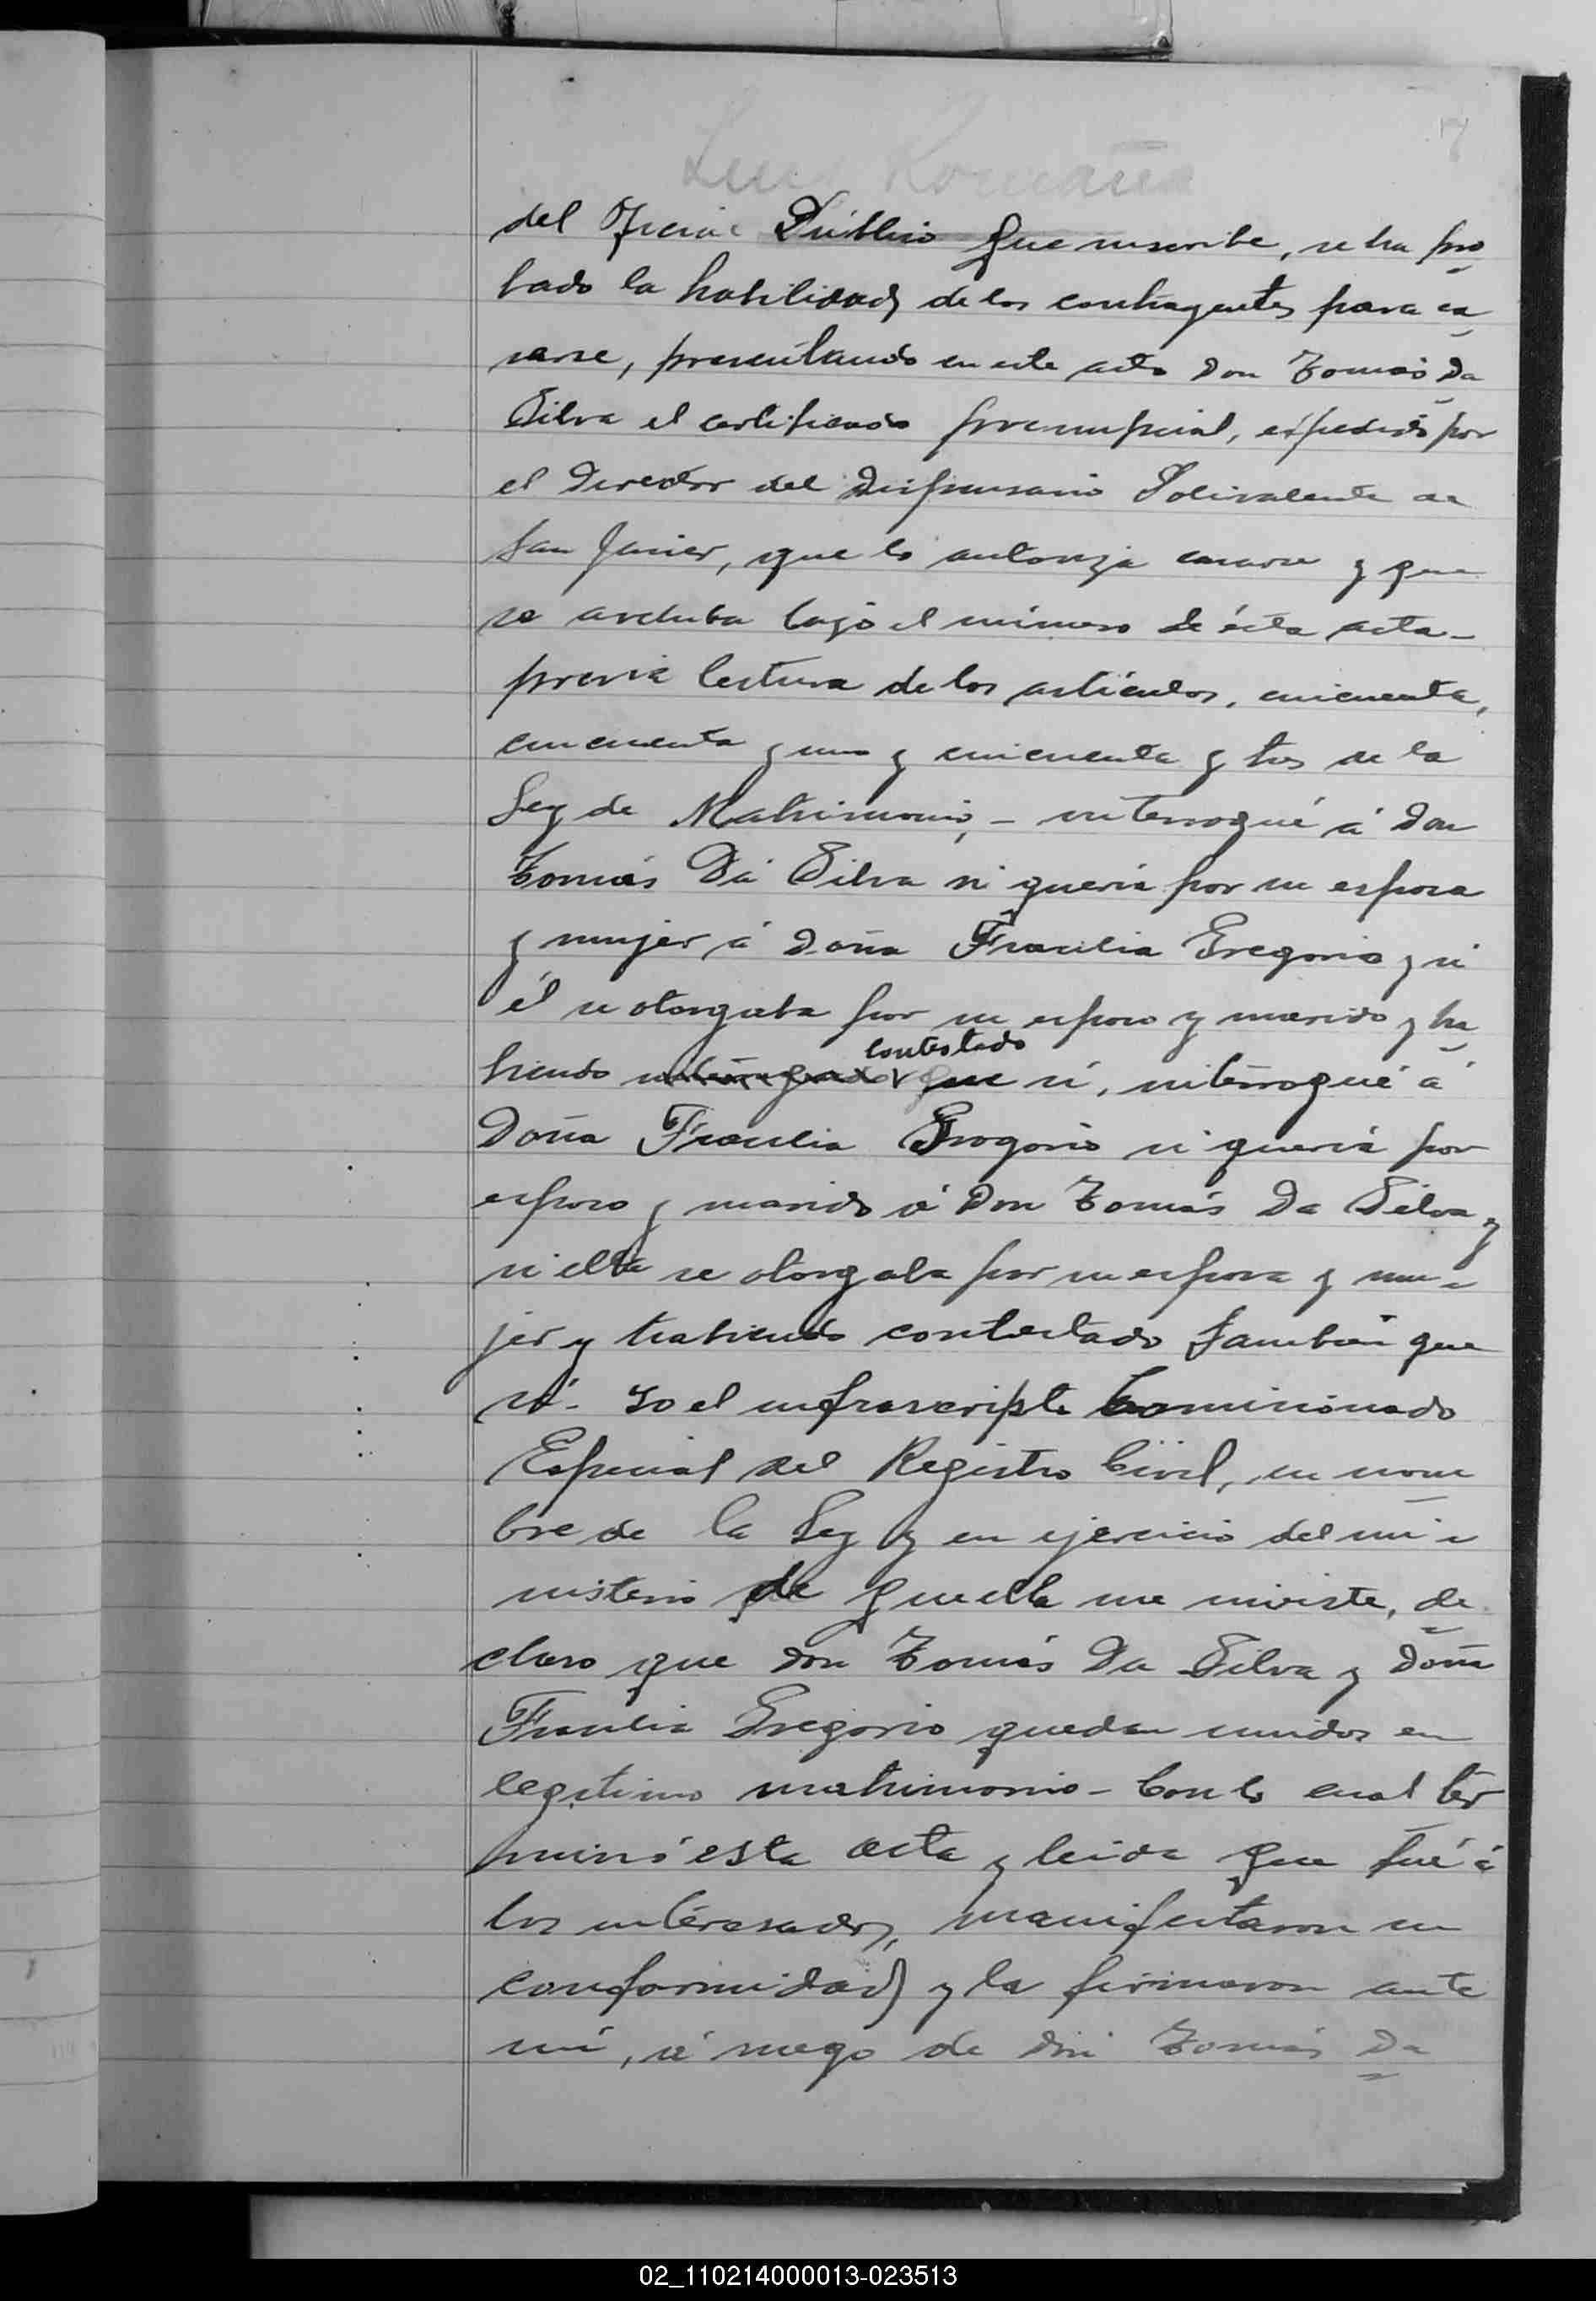 17
Luis Romaña
del Oficial Público que suscribe, se ha pro
bado la habilidad de los contrayentes para ca
sarse, presentando en este acto Don Tomás Da
Silva el certificado prenupcial, expedido por
el Director del Dispensario Polivalente de
San Javier, que lo autoriza casarse y que
se archiva bajo el número de ésta acta-
previa lectura de los artículos, cincuenta,
cincuenta y uno y cincuenta y tres de la
Ley de Matrimonio, - interrogué á Don
Tomás Da Silva si quería por su esposa
y mujer á Doña Fraulia Gregorio y si
él se otorgaba por su esposo y marido y ha
contestado
biendo interrogado que sí, interrogué á
Doña Fraulia Gregorio si quería por
esposo y marido á Don Tomás Da Silva y
si ella se otorgaba por su esposa y mu-
jer y habiendo contestado también que
sí- Yo el infrascripto Comisionado
Especial del Registro Civil, en nom
bre de la Ley y en ejercicio del mi-
nisterio de que ella me inviste, de
claro que don Tomás Da Silva y Doña
Fraulia Gregorio quedan unidos en
legítimo matrimonio- Con lo cual ter
minó esta acta y leida que fué á
los interesados, manifestaron su
conformidad y la firmaron ante
mí, á ruego de Don Tomás Da
02_110214000013-023513